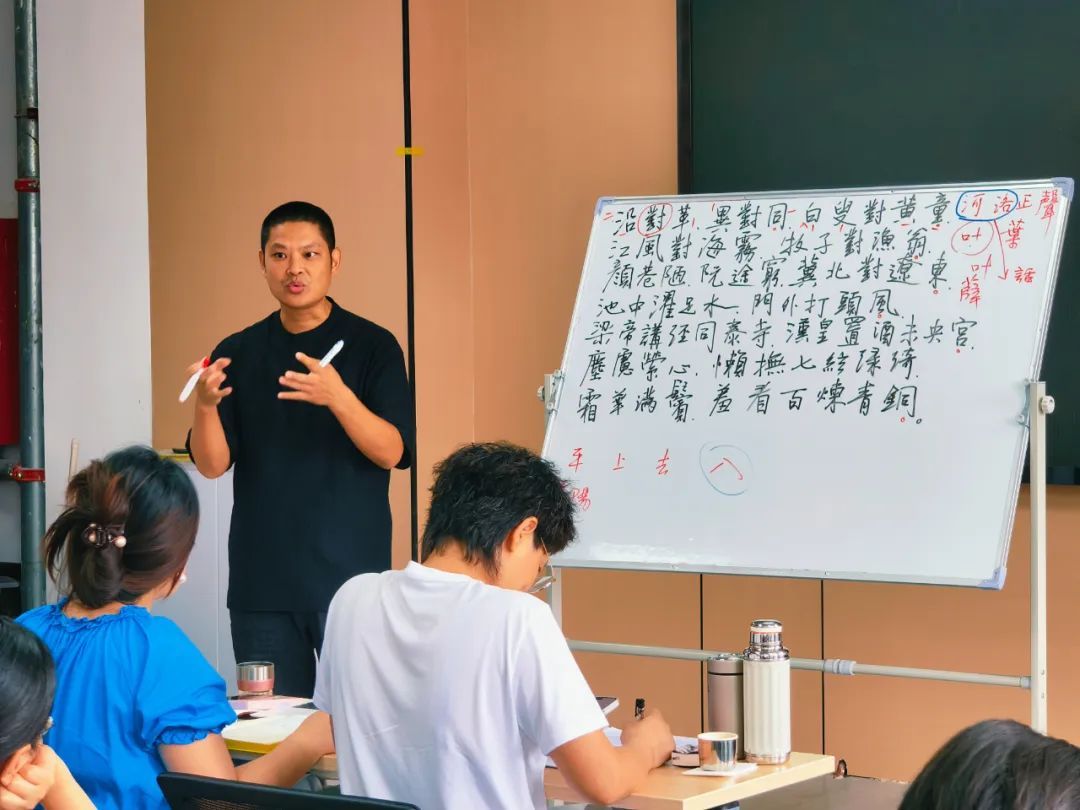 二 沿對革 異對同 白叟對黃童
江風對海霧 牧子對漁翁
顏巷陋 阮途窮 冀北對遼東
池中濯足水 門外打頭風
梁帝講經同泰寺 漢皇置酒未央宮
塵慮縈心 懶撫七絃綠綺
霜華滿鬢 羞看百煉青銅
河洛正聲
叶 葉
叶 話
平 上 去 入
陽